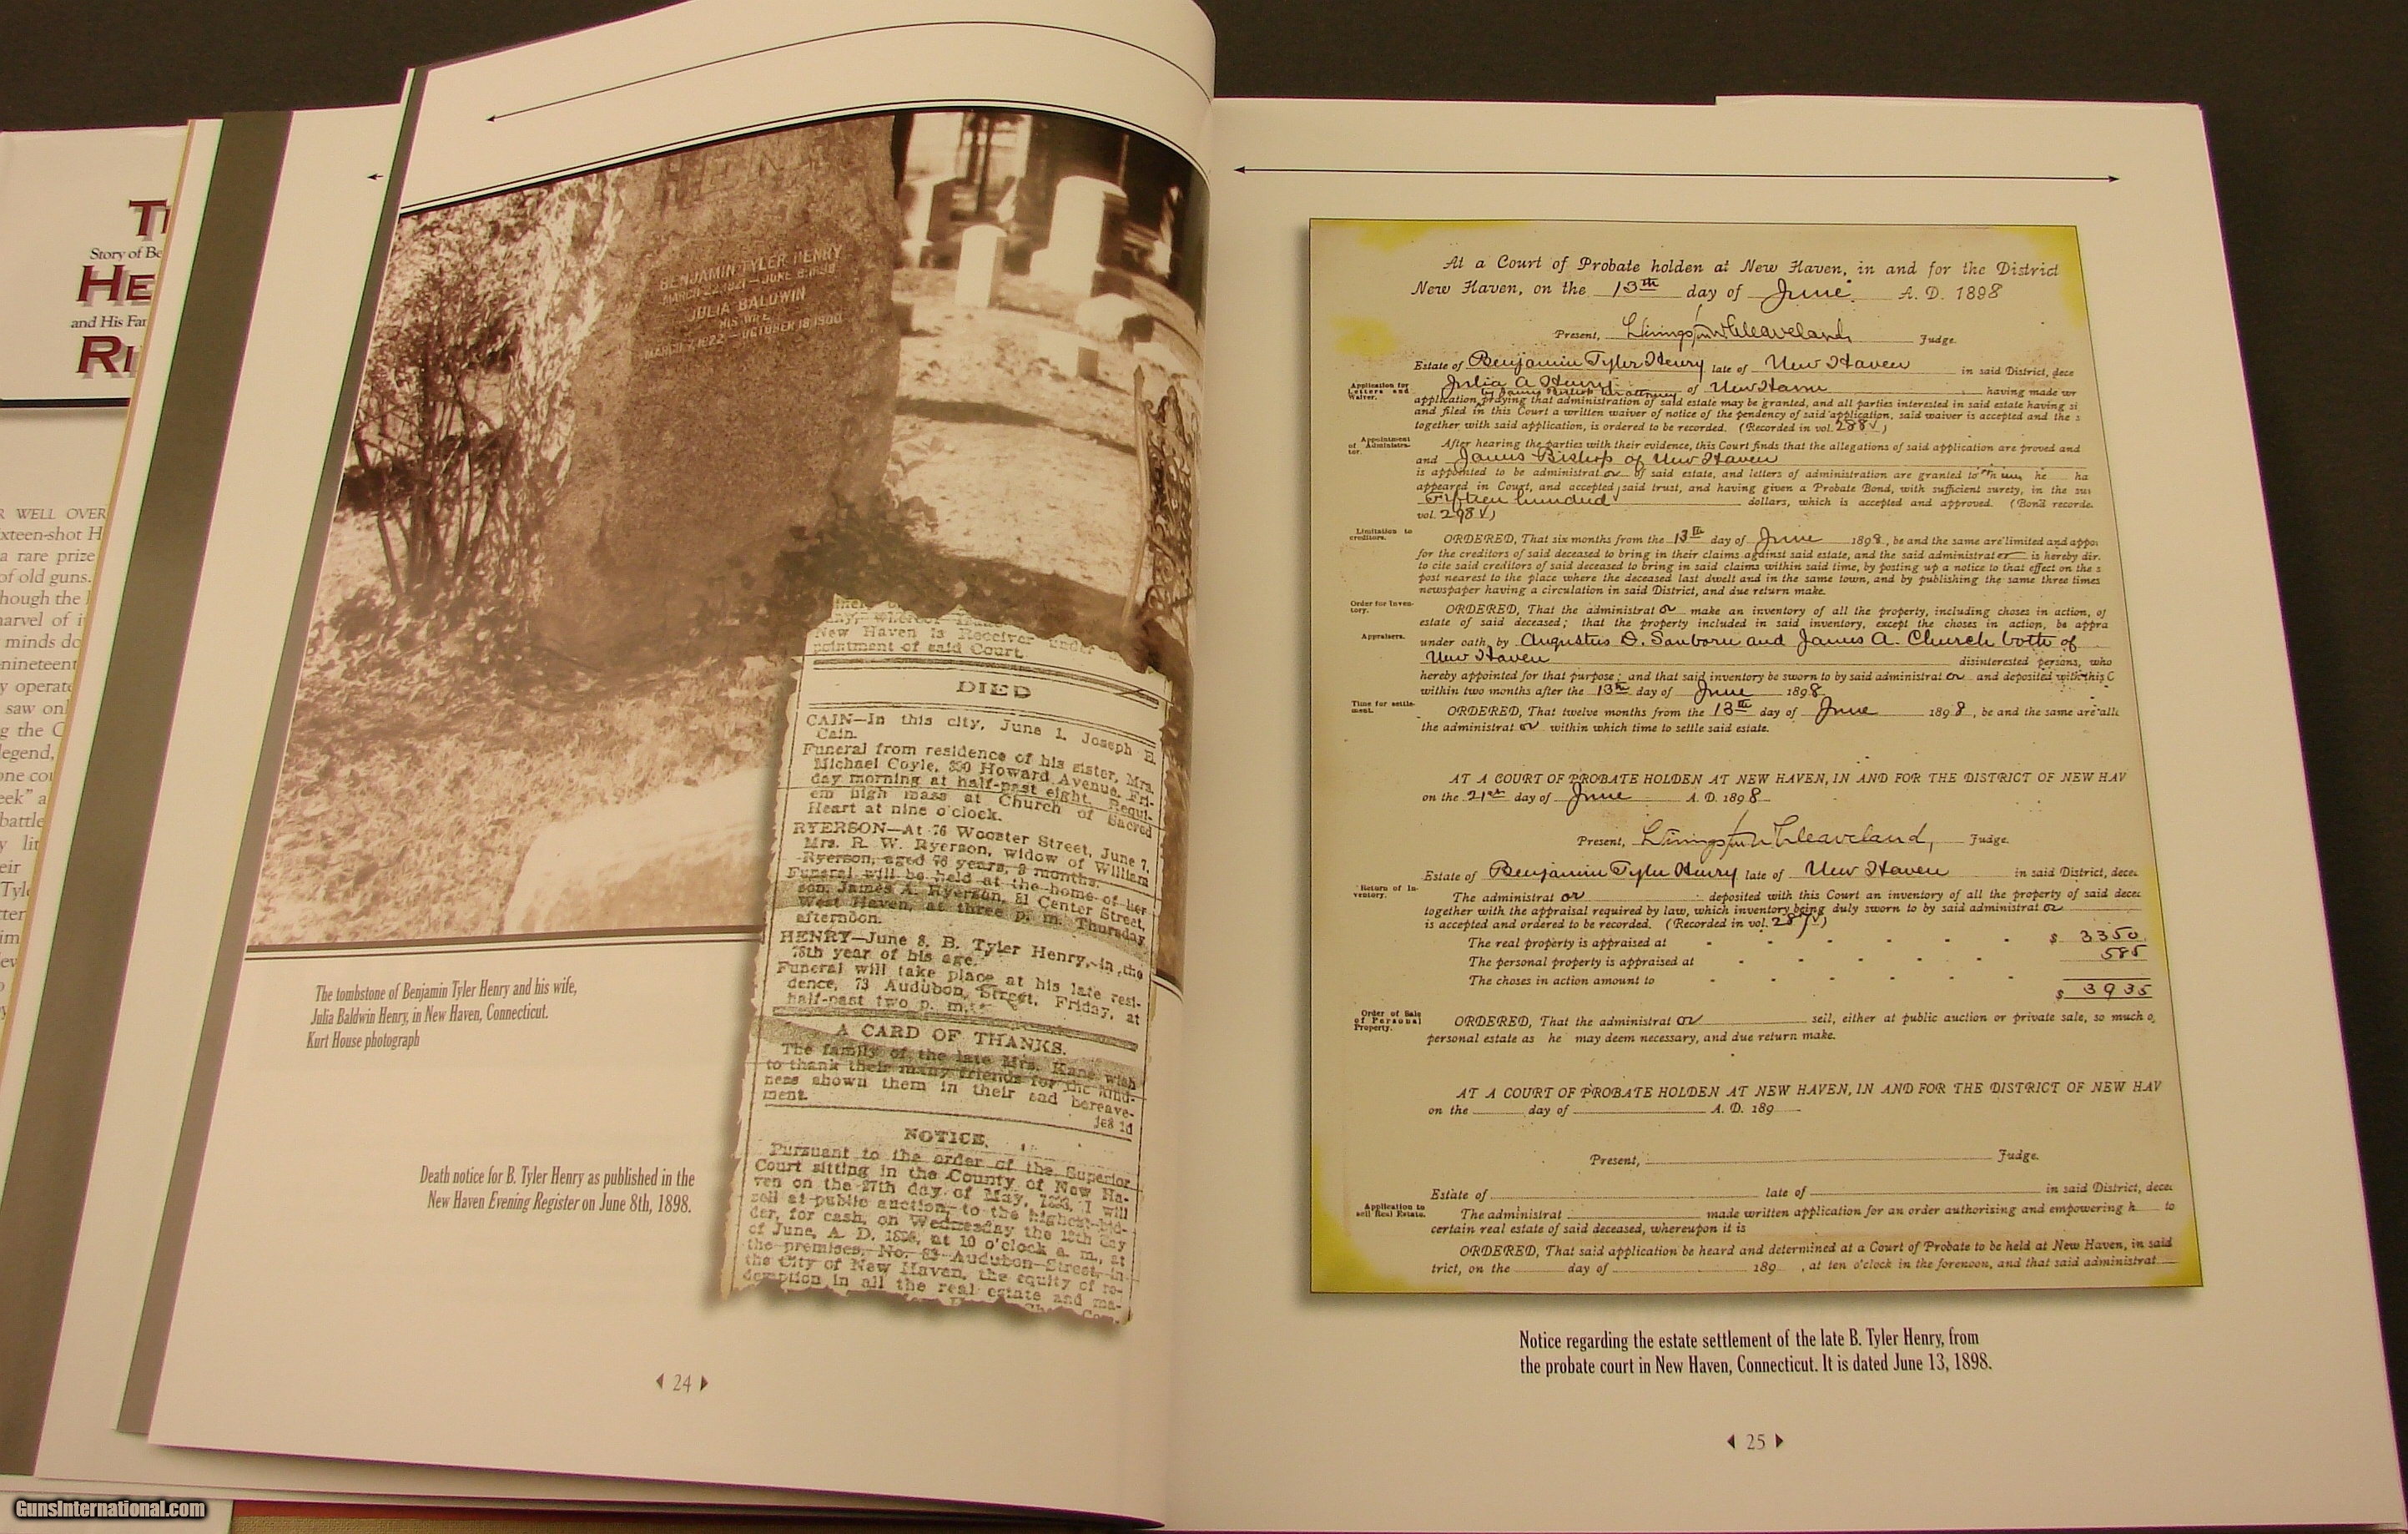 Story of Be
HE
and His Far
RI
R WELL OVER
ixteen-shot H
a rare prize
of old guns.
hough the
minds do
nineteent
y operate
saw onl
g the C
legend,
one cou
eek" a
battle
BENJAMIN TYLER HENRY
MARCH 22, 1821 — JUNE 8, 1898
JULIA BALDWIN
HIS WIFE
MARCH 7, 1822 — OCTOBER 18, 1900
New Haven is Receiver under
pointment of said Court.
DIED
CAIN—In this city, June 1, Joseph E.
Cain.
Funeral from residence of his sister, Mrs.
Michael Coyle, 330 Howard Avenue, Fri-
day morning at half-past eight. Requi-
em high mass at Church of Sacred
Heart at nine o'clock.
RYERSON—At 76 Wooster Street, June 7,
Mrs. R. W. Ryerson, widow of William
Ryerson, aged 76 years, 9 months.
Funeral will be held at the home of her
son, James A. Ryerson, 81 Center Street,
West Haven, at three p. m. Thursday
afternoon.
HENRY—June 8, B. Tyler Henry, in the
78th year of his age.
Funeral will take place at his late resi-
dence, 73 Audubon Street, Friday, at
half-past two p. m.
A CARD OF THANKS.
The family of the late Mrs. Kane wish
to thank their many friends for the kind-
ness shown them in their sad bereave-
ment.
je8 1d
NOTICE.
Pursuant to the order of the Superior
Court sitting in the County of New Ha-
ven on the 27th day of May, 1898, I will
sell at public auction, to the highest bid-
der, for cash, on Wednesday the day
of June, A. D. 1898, at 10 o'clock a. m., at
the premises, No. 83 Audubon Street, in
the City of New Haven, the equity of re-
demption in all the real estate and ma-
The tombstone of Benjamin Tyler Henry and his wife,
Julia Baldwin Henry, in New Haven, Connecticut.
Kurt House photograph
Death notice for B. Tyler Henry as published in the
New Haven Evening Register on June 8th, 1898.
24
At a Court of Probate holden at New Haven, in and for the District
New Haven, on the 13th day of June A. D. 1898
Present, Livingston W Cleaveland Judge.
Estate of Benjamin Tyler Henry late of New Haven in said District, dece
Application for Letters and Waiver.
Julia A Henry of New Haven having made wr
by James Bishop her attorney
application, praying that administration of said estate may be granted, and all parties interested in said estate having si
and filed in this Court a written waiver of notice of the pendency of said application, said waiver is accepted and the s
together with said application, is ordered to be recorded. (Recorded in vol. 288 )
Appointment of Administra- tor.
After hearing the parties with their evidence, this Court finds that the allegations of said application are proved and
and James Bishop of New Haven
is appointed to be administrat or of said estate, and letters of administration are granted to him he ha
appeared in Court, and accepted said trust, and having given a Probate Bond, with sufficient surety, in the su
Fifteen hundred dollars, which is accepted and approved. (Bond recorde
vol. 298 )
Limitation to creditors.
ORDERED, That six months from the 13th day of June 1898, be and the same are limited and appoi
for the creditors of said deceased to bring in their claims against said estate, and the said administrat or is hereby dir
to cite said creditors of said deceased to bring in said claims within said time, by posting up a notice to that effect on the s
post nearest to the place where the deceased last dwelt and in the same town, and by publishing the same three times
newspaper having a circulation in said District, and due return make.
Order for Inven- tory.
ORDERED, That the administrat or make an inventory of all the property, including choses in action, of
estate of said deceased; that the property included in said inventory, except the choses in action, be appra
Appraisers.
under oath, by Augustus D. Sanborn and James A. Church both of
New Haven disinterested persons, who
hereby appointed for that purpose; and that said inventory be sworn to by said administrat or and deposited with this C
within two months after the 13th day of June 1898
Time for settle- ment.
ORDERED, That twelve months from the 13th day of June 1898, be and the same are all
the administrat or within which time to settle said estate.
AT A COURT OF PROBATE HOLDEN AT NEW HAVEN, IN AND FOR THE DISTRICT OF NEW HAV
on the 21st day of June A. D. 1898
Present, Livingston W Cleaveland, Judge.
Estate of Benjamin Tyler Henry late of New Haven in said District, decea
Return of In- ventory.
The administrat or deposited with this Court an inventory of all the property of said decea
together with the appraisal required by law, which inventory being duly sworn to by said administrat or
is accepted and ordered to be recorded. (Recorded in vol. 287 )
The real property is appraised at - - - - - - $ 3350
The personal property is appraised at - - - - - 585
The choses in action amount to - - - - - -
$ 3935
Order of Sale of Personal Property.
ORDERED, That the administrat or sell, either at public auction or private sale, so much o
personal estate as he may deem necessary, and due return make.
AT A COURT OF PROBATE HOLDEN AT NEW HAVEN, IN AND FOR THE DISTRICT OF NEW HAV
on the day of A. D. 189
Present, Judge.
Estate of late of in said District, decea
Application to sell Real Estate.
The administrat made written application for an order authorizing and empowering h to
certain real estate of said deceased, whereupon it is
ORDERED, That said application be heard and determined at a Court of Probate to be held at New Haven, in said
trict, on the day of 189 , at ten o'clock in the forenoon, and that said administrat
Notice regarding the estate settlement of the late B. Tyler Henry, from
the probate court in New Haven, Connecticut. It is dated June 13, 1898.
25
GunsInternational.com